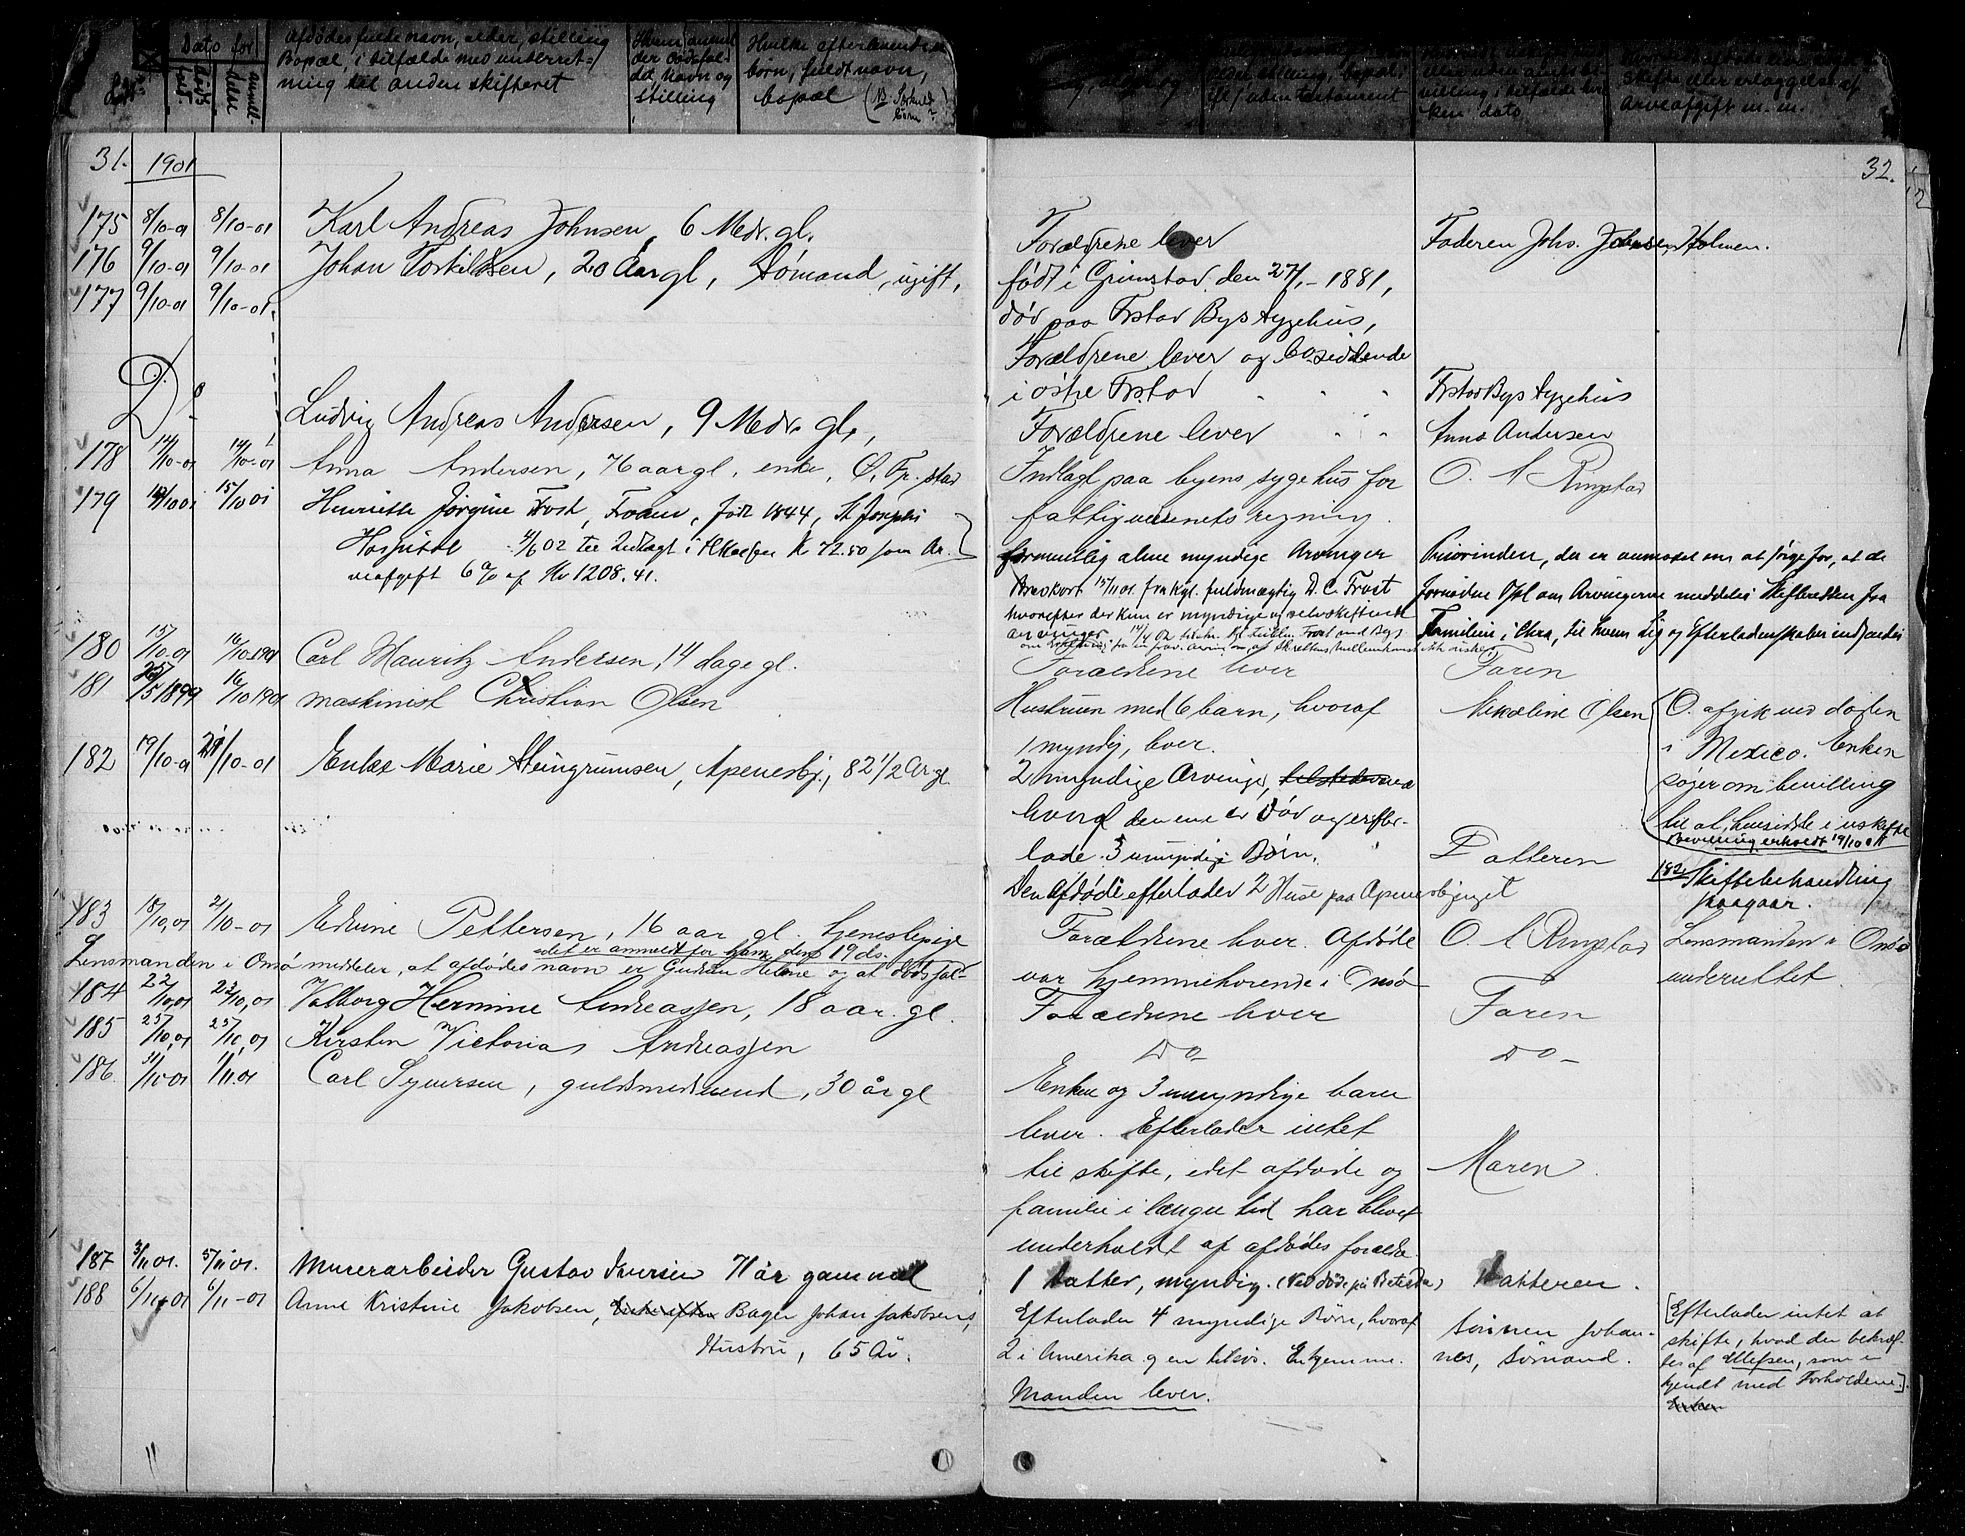 Dato for
Afdødes fulde navn, alder, stilling
Bopæl, i tilfælde med underret-
ning til anden skifteret
der dødsfal-
det, navn og
stilling
Hvilke efterlevende
børn, fuldt navn,
bopæl
skifte eller erlæggelse af
Arveafgift m. m.
31.
1901
175 8/10-01 8/10-01 Karl Andreas Johnsen, 6 Mdr. gl.
176 9/10-01 9/10-01 Johan Torkildsen, 20 Aar gl, Sømand, ugift,
177 9/10-01 9/10-01.
Do
Ludvig Andreas Andersen, 9 Mdr. gl.,
178 14/10-01 14/10-01 Anna Andersen, 76 aar gl. enke, Ø. Fr.stad
179 15/10 01 Henriette Jørgine Frost, Frøken, født 1844, St Josephs
Hospital 4/6 02 til Indtægt i Kr 72.50 som Ar-
veafgift 6 % af Kr 1208.41.
180 15/10-01 16/10 1901 Carl Mauritz Andersen, 14 dage gl.
181 25/5 1899 16/10 1901 maskinist Christian Olsen
182 19/10-01 21/10-01 Enke Marie Steingrimsen, Apenesbj., 82 1/2 Ar gl.
183 18/10,01 21/10-01 Edvine Pettersen, 16 aar gl. tjenestepige
det er anmeldt for ham den 19 ds.
Lensmanden i Onsø meddeler, at afdødes navn er Gudrun Helene og at dødsfal-
184 22/10,01 23/10,01 Valborg Hermine Andreassen, 18 aar. gl.
185 25/10,01 25/10,01 Kirsten Victoria Andreassen
186. 31/10-01 1/11.01 Carl Syversen, guldsmedsvend, 30 år gl
187 3/11 01. 5/11 01. Murerarbeider Gustav Iversen 71 år gammel
188 6/11-01 6/11-01 Anne Kristine Jakobsen, Bager Johan Jakobsens,
Hustru, 65 År.
32.
Forældrene lever
Faderen Johs. Johnsen, Holmen.
født i Grimstad den 27/1-1881,
død paa Frstad Bys Sygehus,
Forældrene lever og bosiddende
i østre Frstad
Frstad Bys Sygehus
Forældrene lever
Anna Andersen
Indlagt paa byens sygehus for
O. A Ringstad
fattigvæsenets regning.
formentlig alene myndige Arvinger
Brevkort 15/11 01. fra Kgl. fuldmægtig D. C. Frost
hvorefter der kun er myndige og selvskiftende
arvinger
Priorinden, der er anmodet om at sørge for, at de
fornødne Opl om Arvingerne meddeles Skifteretten fra
Familien i Chra, til hvem Lig og Efterladenskaber indsendes
Forældrene lever
Faren
Hustruen med 6 barn, hvoraf
1 myndig, lever.
Nikoline Olsen
O. afgik ved døden
i Mexico. Enken
søger om bevilling
til at hensidde i uskifte
Bevilling erholdt 19/10 01
2 myndige Arvinge, tilstedeværd
hvoraf den ene er død og efter-
lade. 3 umyndige Børn.
Datteren
Den Afdøde efterlader 2 Huse paa Apenesbjerget
182 Skiftebehandling
paagaar.
Forældrene lever. Afdøde
var hjemmehørende i Onsø
O. A Ringstad
Lensmanden i Onsø
underrettet.
Forældrene lever
Faren
Do
Do
Enken og 3 umyndige barn
lever. Efterlader intet
til skifte, idet afdøde og
familie i længre tid har blevet
underholdt af afdødes forældre.
Maren
1 datter, myndig.
Datteren.
Efterlader 4 myndige Børn, hvoraf
2 i Amerika og en tilsøs. En hjemme.
Manden lever.
Sønnen Johan-
nes, Sømand.
[Efterlader intet at
skifte, hvad der bekræf-
tes af Ellefsen, som er
kjendt med Forholdene].